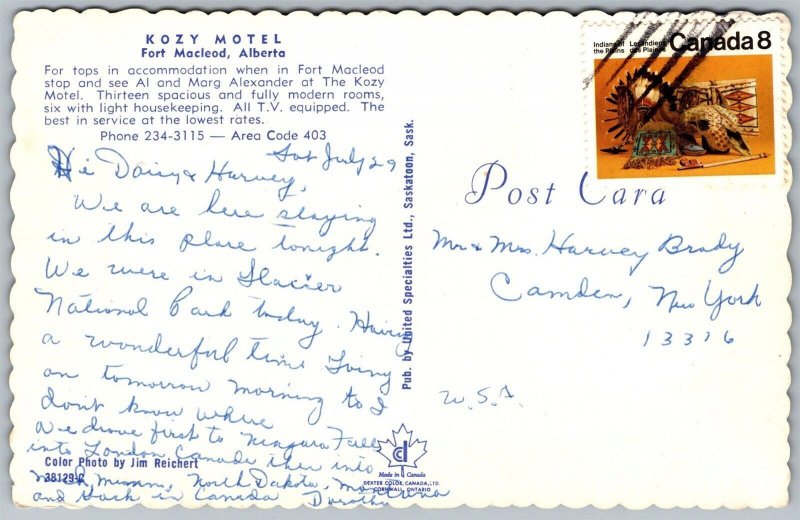 KOZY MOTEL
Fort Macleod, Alberta
For tops in accommodation when in Fort Macleod
stop and see Al and Marg Alexander at The Kozy
Motel. Thirteen spacious and fully modern rooms,
six with light housekeeping. All T.V. equipped. The
best in service at the lowest rates.
Phone 234-3115 — Area Code 403
Sat July 29
Hi Daisy & Harvey,
We are here staying
in this place tonight.
We were in Glacier
National Park today. Having
a wonderful time Going
on tomorrow morning to I
don't know where
We drove first to Niagara Falls
into London Canada then into
Mich, Minn, North Dakota, Montana
and back in Canada Dorothy
Color Photo by Jim Reichert
38129-C
Pub. by United Specialties Ltd., Saskatoon, Sask.
Made in Canada
DEXTER COLOR, CANADA, LTD.
CORNWALL, ONTARIO
Indians of the Plains
Les Indiens des Plaines
Canada 8
Post Card
Mr & Mrs. Harvey Brady
Camden, New York
13316
U.S.A.